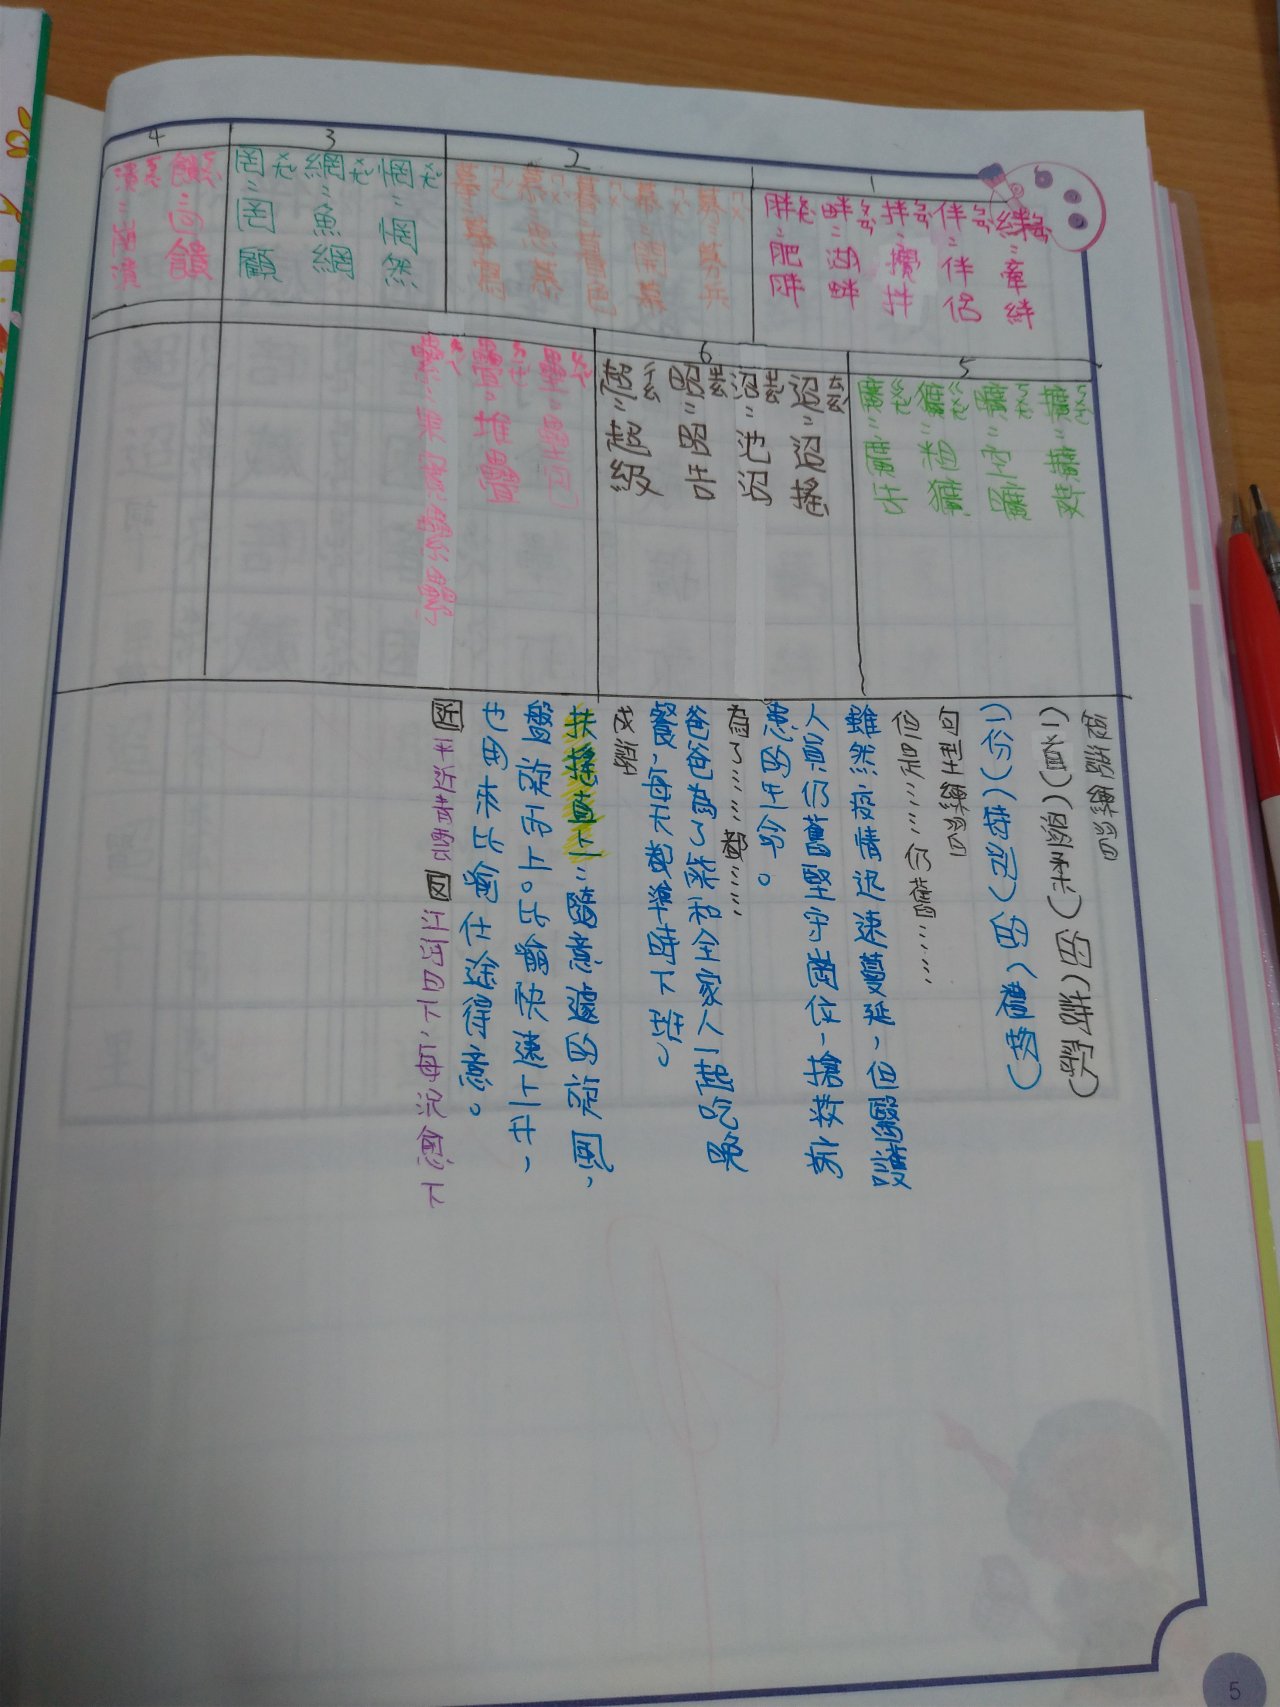 1
絆：牽絆
伴：伴侶
拌：攪拌
畔：湖畔
胖：肥胖
2
募：募兵
幕：開幕
暮：暮色
慕：思慕
摹：摹寫
3
惘：惘然
網：魚網
罔：罔顧
4
饋：回饋
潰：崩潰
5
擴：擴散
曠：空曠
獷：粗獷
6
迢：迢搖
沼：池沼
昭：昭告
超：超級
壘：壘包
疊：堆疊
短語練習
(一直)(溫柔)的(清歌)
(一份)(特別)的(禮物)
句型練習
但是……仍舊……
雖然疫情迅速蔓延，但醫護
人員仍舊堅守崗位，搶救病
患的生命。
為了……都……
爸爸為了要和全家人一起吃晚
餐，每天都準時下班。
成語
扶搖直上：隨意邊的旋風，
盤旋而上。比喻快速上升，
也用來比喻仕途得意。
近 平近青雲 反 江河日下、每況愈下
5